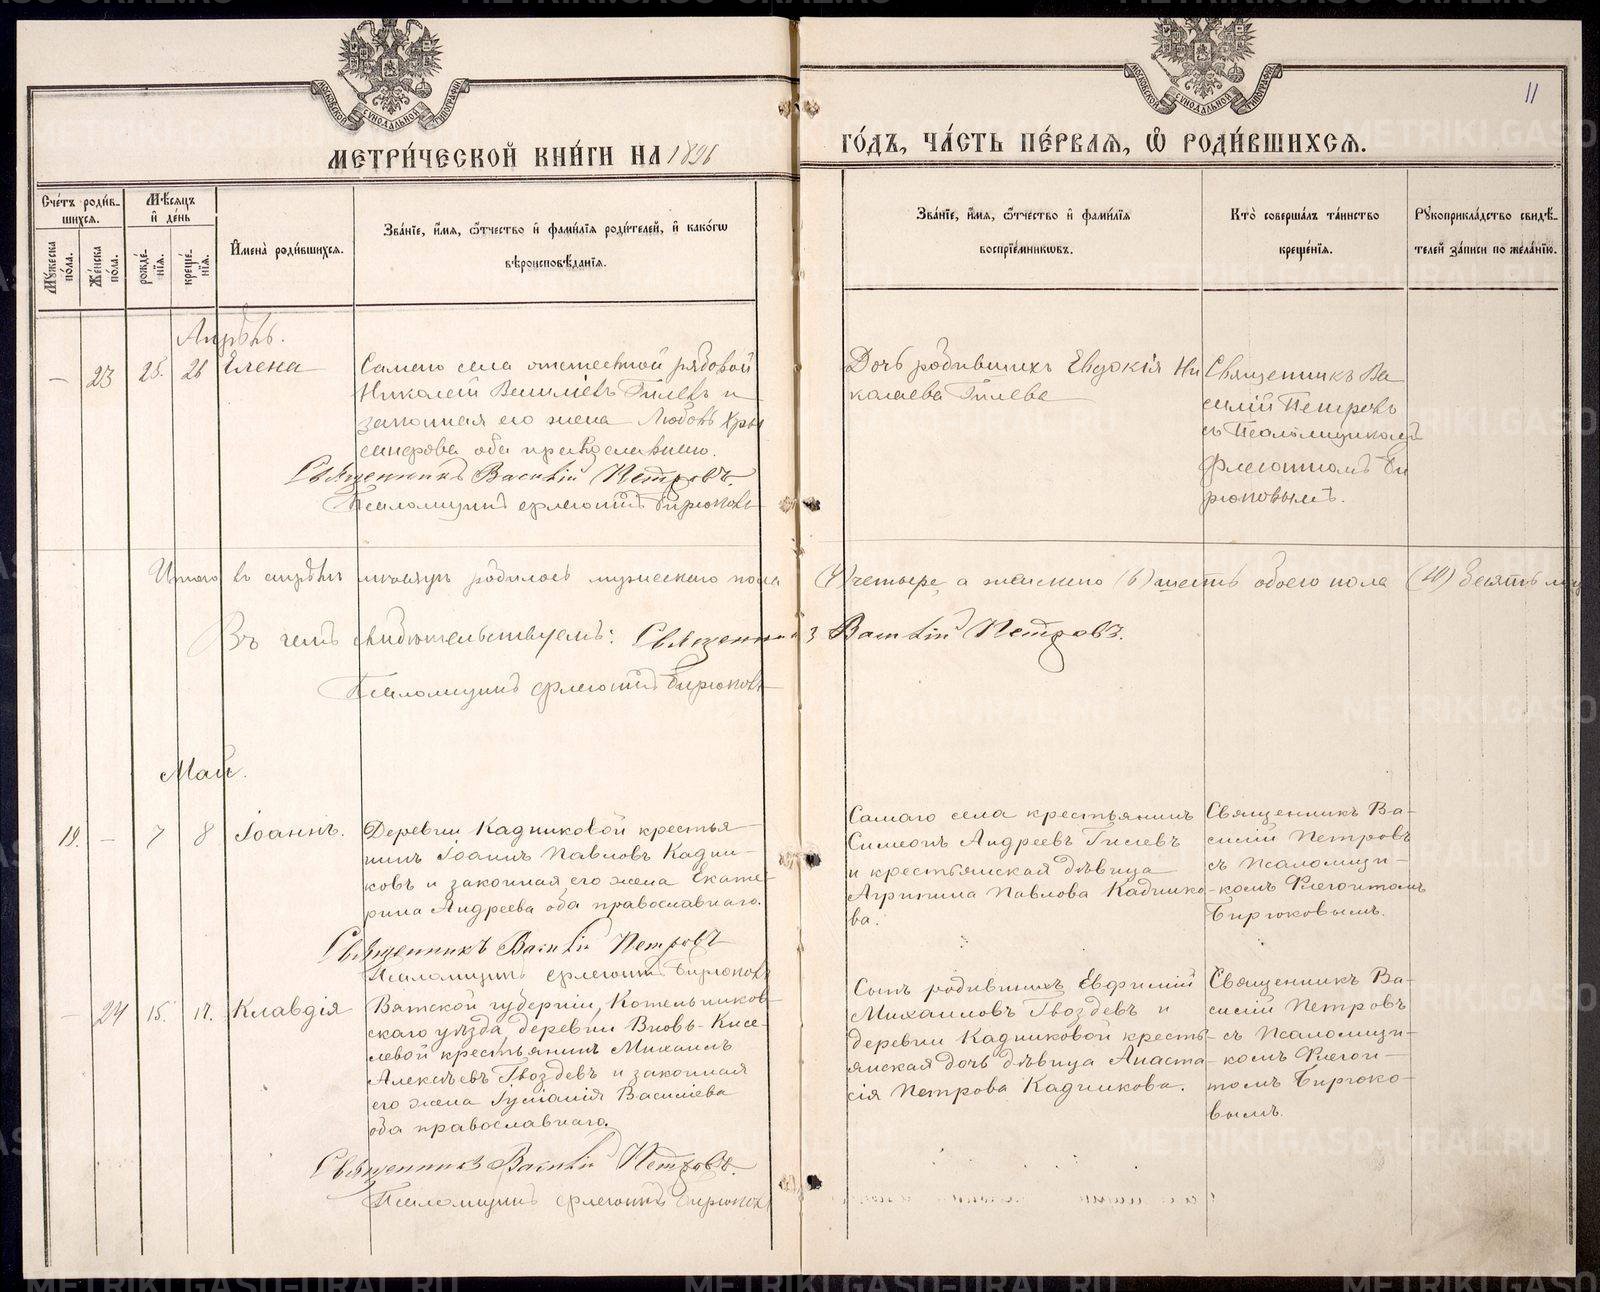 МОСКОВСКОЙ СѴНОДАЛЬНОЙ ТИПОГРАФІИ
МОСКОВСКОЙ СѴНОДАЛЬНОЙ ТИПОГРАФІИ
11
МЕТРИ́ЧЕСКОЙ КНИ́ГИ НА 1896
ГО́ДЪ, ЧА́СТЬ ПЕ́РВАѦ, Ѡ҆ РОДИ́ВШИХСѦ.
Сче́тъ роди́в-
шихсѧ.
Мꙋ́жеска по́ла.
Же́нска по́ла.
Мѣ́сѧцъ
и҆ де́нь
рожде́-
нїѧ.
креще́-
нїѧ.
И҆мена̀ роди́вшихсѧ.
Зва́нїе, и҆́мѧ, ѻ҆́тчество и҆ фами́лїѧ роди́телей, и҆ како́гѡ
вѣроисповѣ́данїѧ.
Зва́нїе, и҆́мѧ, ѻ҆́тчество и҆ фами́лїѧ
воспрїе́мникѡвъ.
Кто̀ соверша́лъ та́инство
креще́нїѧ.
Рꙋкоприкла́дство свидѣ́-
телей за́писи по жела́нїю.
Апрѣль.
— 23 25. 26 Елена
Самаго села отставной рядовой
Николай Василіевъ Гилевъ и
законная его жена Любовь Хри
санфова оба православнаго.
Священникъ Василій Петровъ.
Псаломщикъ Флегонтъ Бирюковъ
Дочь родившихъ Евдокія Ни
колаева Гилева
Священникъ Ва
силій Петровъ
съ Псаломщикомъ
Флегонтомъ Би
рюковымъ.
Итого въ апрѣлѣ мѣсяцѣ родилось мужескаго пола (4) четыре, а женскаго (6) шесть обоего пола (10) десять
Въ чемъ свидѣтельствуемъ: Священникъ Василій Петровъ.
Псаломщикъ Флегонтъ Бирюковъ
Май.
19. — 7 8 Іоаннъ.
Деревни Кадниковой крестья-
нинъ Іоаннъ Павловъ Кадни-
ковъ и законная его жена Екате-
рина Андреева оба православнаго.
Священникъ Василій Петровъ
Псаломщикъ Флегонтъ Бирюковъ
Самаго села крестьянинъ
Симеонъ Андреевъ Гилевъ
и крестьянская дѣвица
Агрипина Павлова Каднико-
ва.
Священникъ Ва-
силій Петровъ
съ Псаломщи-
комъ Флегонтомъ
Бирюковымъ.
— 24 15. 17. Клавдія
Вятской губерніи, Котельников-
скаго уѣзда деревни Вновь-Кисе-
левой крестьянинъ Михаилъ
Алексѣевъ Гвоздевъ и законная
его жена Іуліанія Василіева
оба православнаго.
Священникъ Василій Петровъ.
Псаломщикъ Флегонтъ Бирюковъ
Сынъ родившихъ Евфимій
Михаиловъ Гвоздевъ и
деревни Кадниковой кресть-
янская дочь дѣвица Анаста-
сія Петрова Кадникова.
Священникъ Ва-
силій Петровъ
съ Псаломщи-
комъ Флегон-
томъ Бирюко-
вымъ.
METRIKI.GASO-URAL.RU